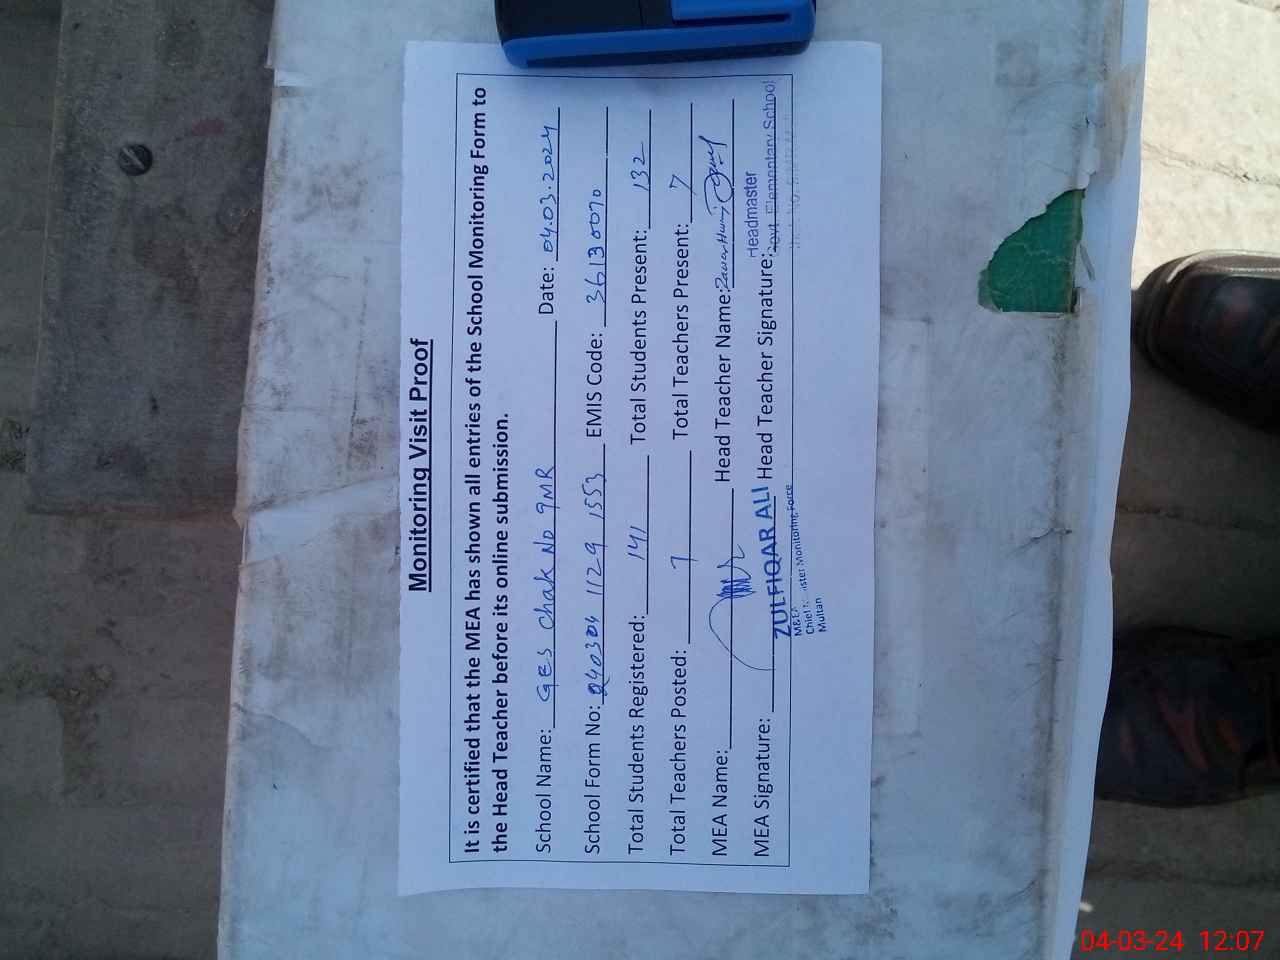 Monitoring Visit Proof
It is certified that the MEA has shown all entries of the School Monitoring Form to
the Head Teacher before its online submission.
School Name: GES Chak No 9MR Date: 04.03.2024
School Form No: 240304 1129 1553 EMIS Code: 36130070
Total Students Registered: 141 Total Students Present: 132
Total Teachers Posted: 7 Total Teachers Present: 7
MEA Name: Head Teacher Name:
MEA Signature: ZULFIQAR ALI Head Teacher Signature: Headmaster
M&EA Govt. Elementary School
Chief Minister Monitoring Force
Multan
04-03-24 12:07